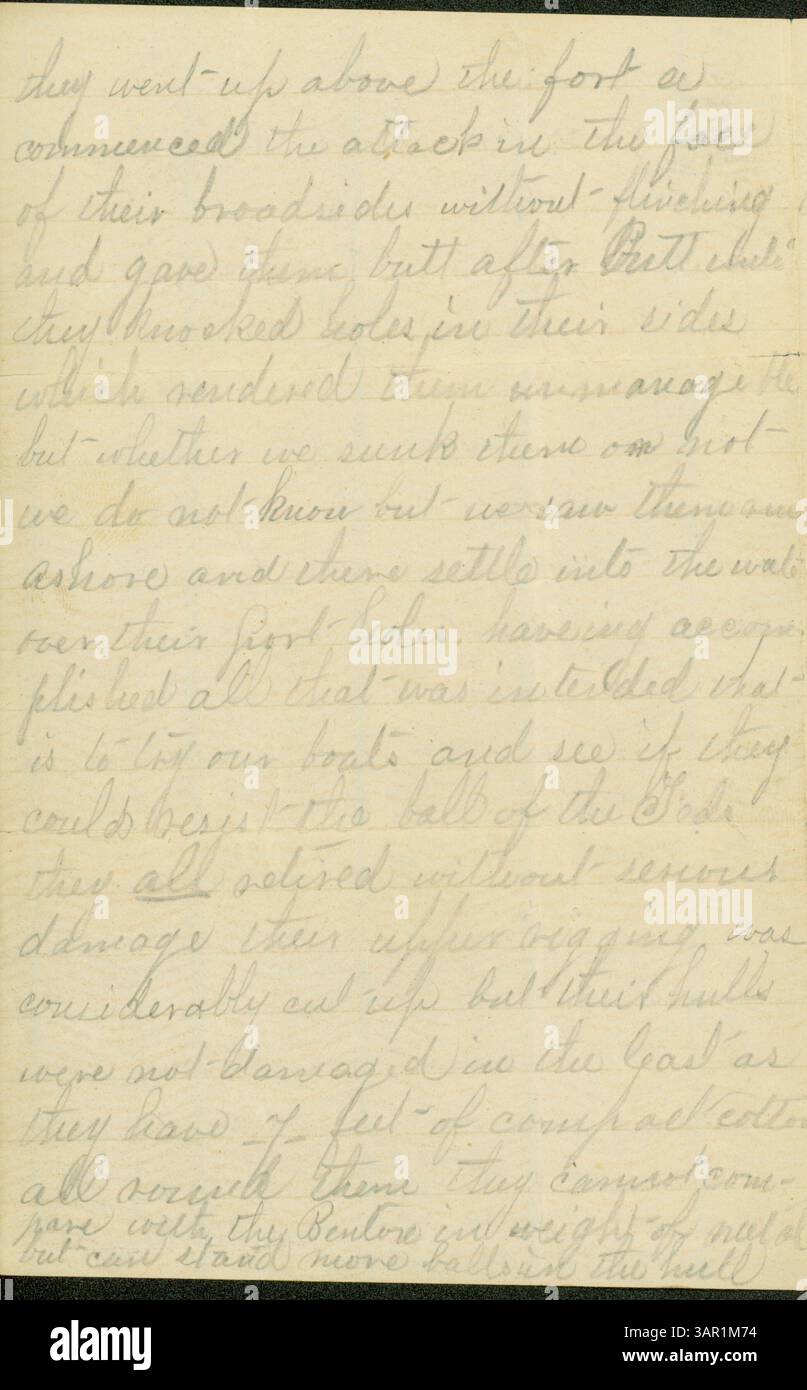 they went up above the fort &
commenced the attack in the face
of their broadsides without flinching
and gave them butt after Butt until
they knocked holes in their sides
which rendered them unmanageble
but whether we sunk them or not
we do not know but we saw them run
ashore and there settle into the wate
over their port holes haveing accom
plished all that was intended that
is to try our boats and see if they
could resist the ball of the Feds
they all retired without serious
damage their upper rigging was
considerably cut up but their hulls
were not damaged in the least as
they have 7 feet of compact cotton
all round them they cannot com-
pare with the Benton in weight of metal
but can stand more balls in the hull
alamy
Image ID: 3AR1M74
www.alamy.com